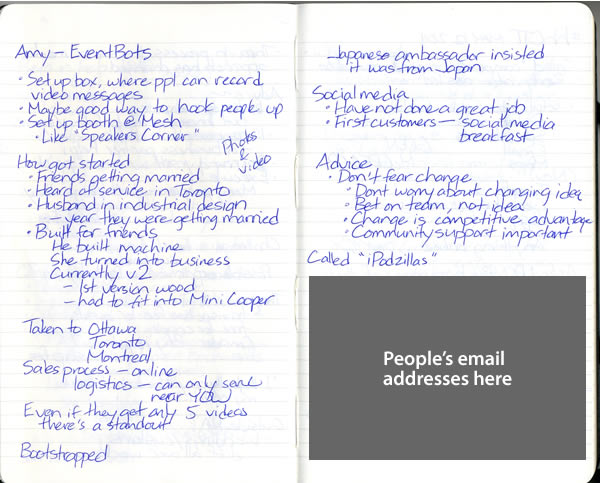 Amy – EventBots
• Set up box, where ppl can record
video messages
• Maybe good way to hook people up
• Set up booth @ Mesh
• Like "Speakers Corner"
Photos
&
video
How got started
• Friends getting married
• Heard of service in Toronto
• Husband in industrial design
– year they were getting married
• Built for friends
He built machine
She turned into business
Currently v2
– 1st version wood
– had to fit into Mini Cooper
Taken to Ottawa
Toronto
Montreal
Sales process – online
logistics – can only send
near YOW
Even if they get only 5 videos
there's a standout
Bootstrapped
Japanese ambassador insisted
it was from Japan
Social media
• Have not done a great job
• First customers – social media
breakfast
Advice
• Don't fear change
• Dont worry about changing idea
• Bet on team, not idea
• Change is competitive advantage
• Community support important
Called "iPodzillas"
People's email
addresses here